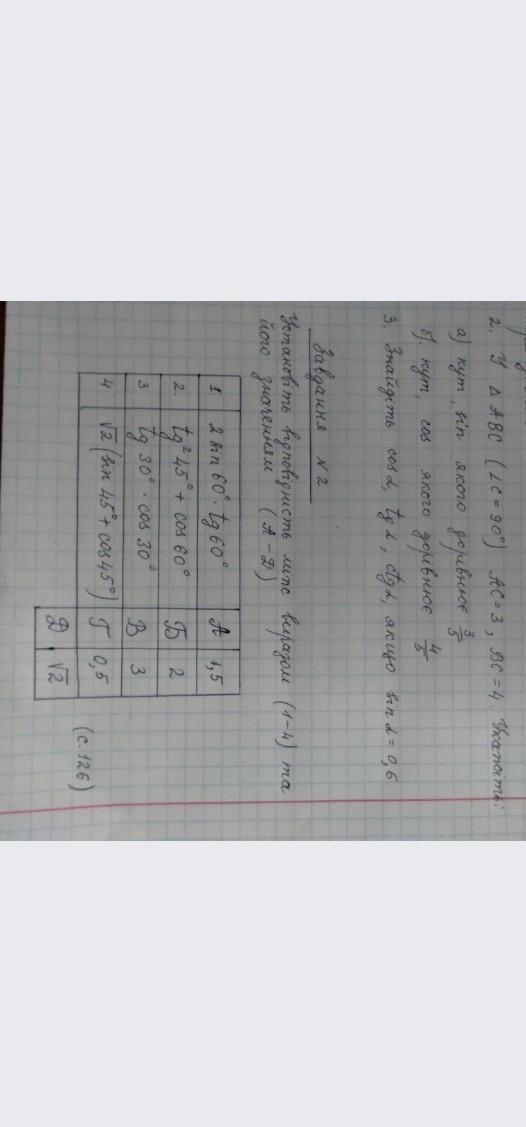 2. У △ ABC (∠C = 90°) AC = 3, BC = 4. Укажіть:
а) кут, sin якого дорівнює 3/5
б) кут, cos якого дорівнює 4/5
3. Знайдіть cos α, tg α, ctg α, якщо sin α = 0,6
Завдання №2
Установіть відповідність між виразом (1-4) та
його значенням (А-Д)
1 2 sin 60° · tg 60° А 1,5
2 tg² 45° + cos 60° Б 2
3 tg 30° · cos 30° В 3
4 √2 (sin 45° + cos 45°) Г 0,5
Д √2
(с. 126)